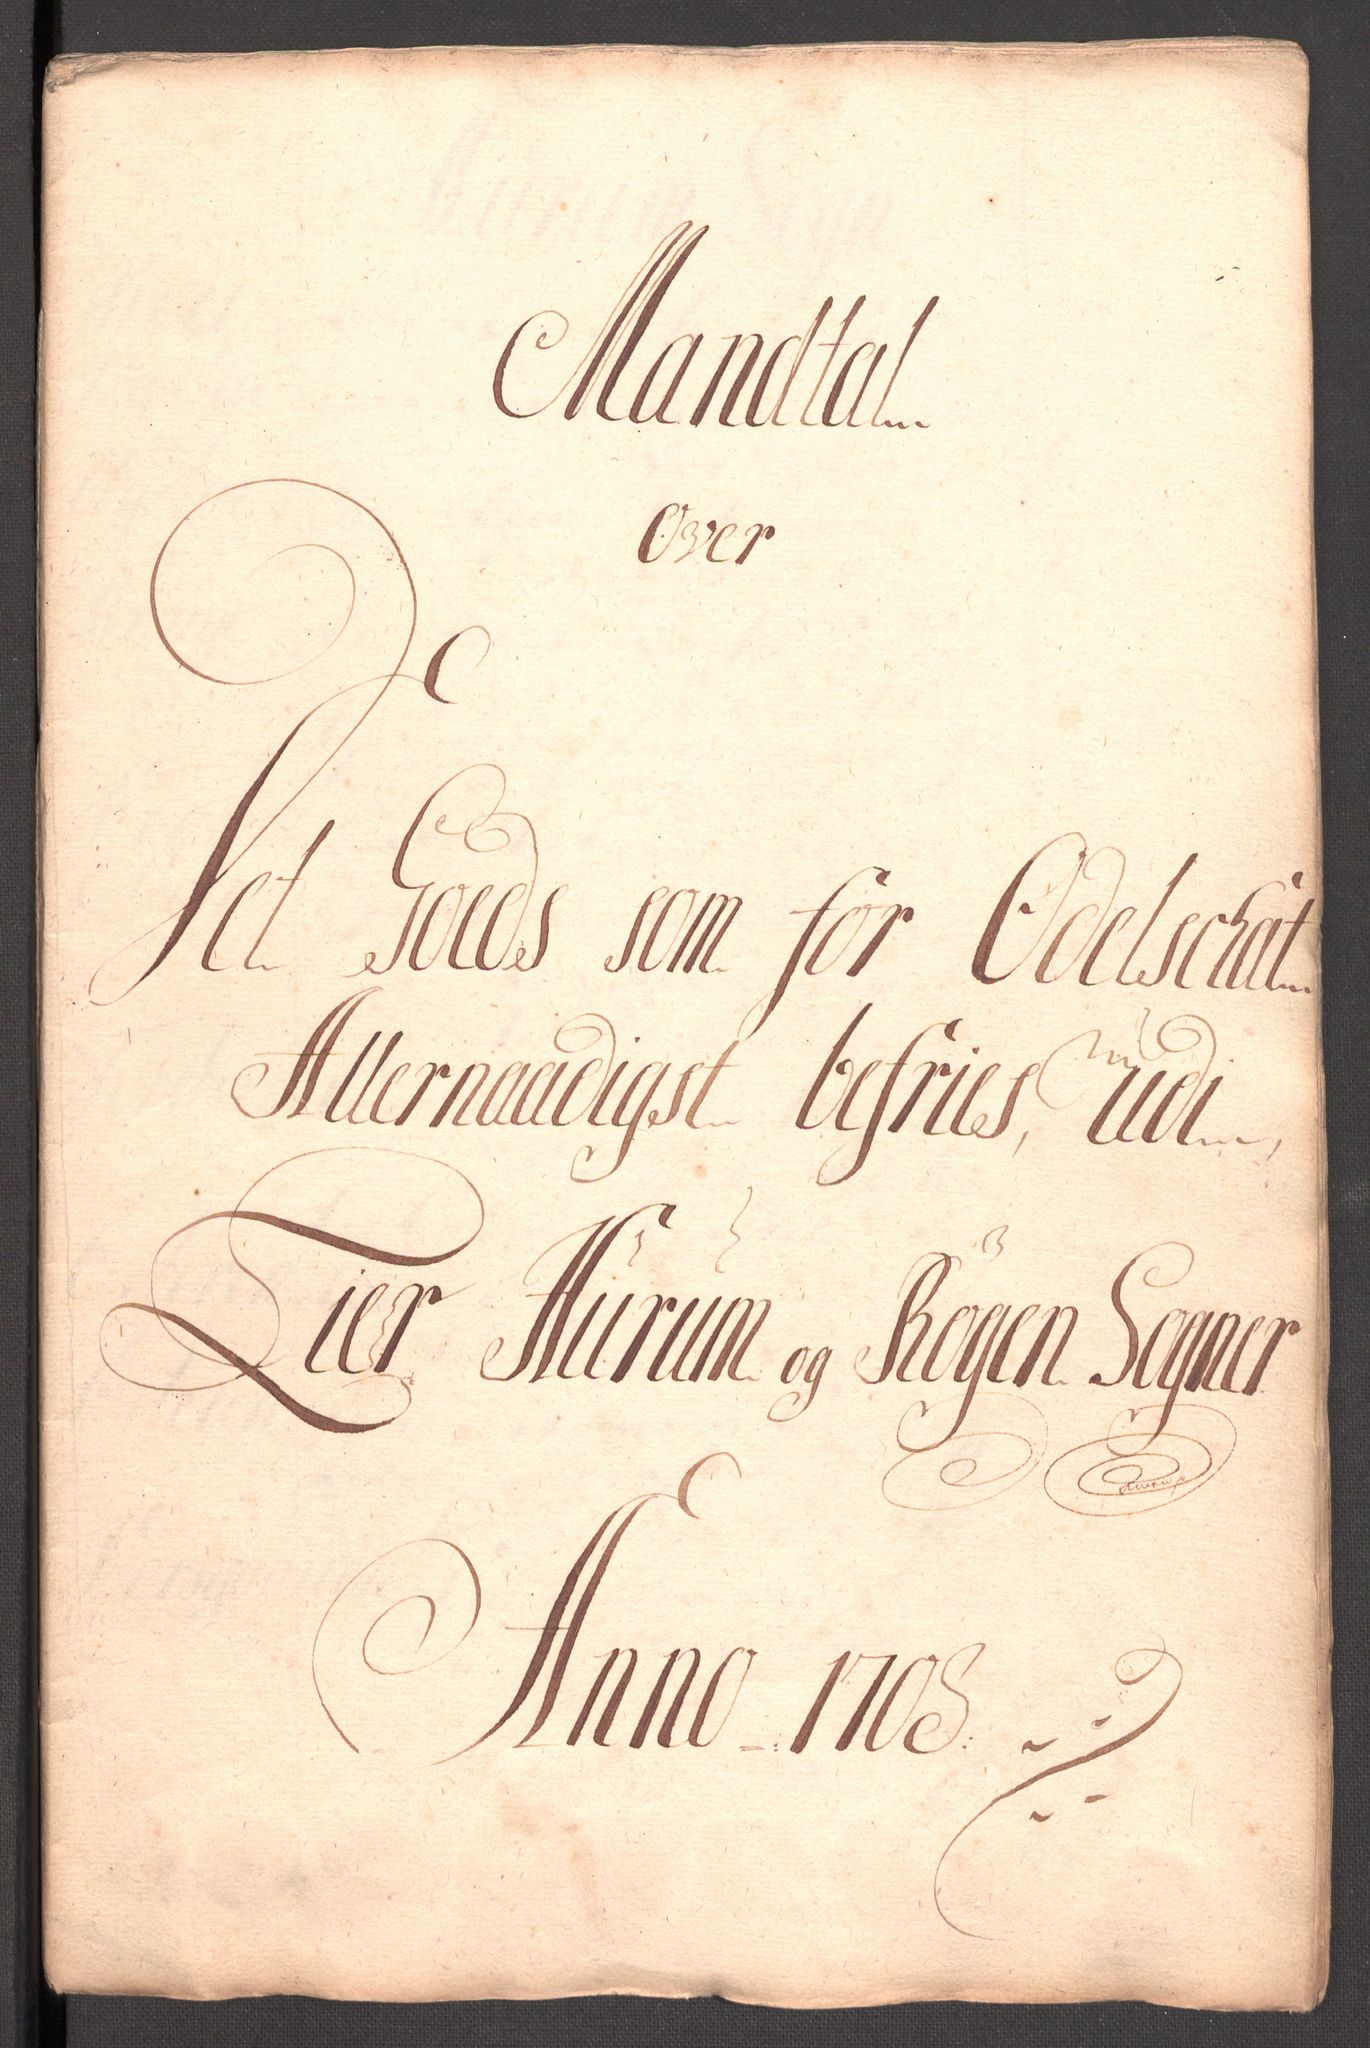 Mandtal
Over
Det Goeds som for Odelschat
Allernaadigst befries, üdi
Lier Hürüm og Rögen Sogner
Anno 1705